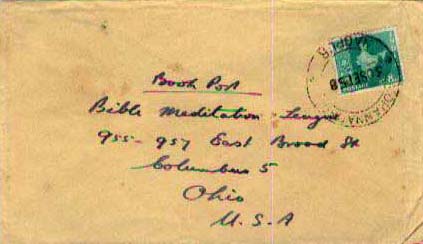 Book Post
Bible Meditation League
955-957 East Broad St
Columbus 5
Ohio
U.S.A
POSTAGE